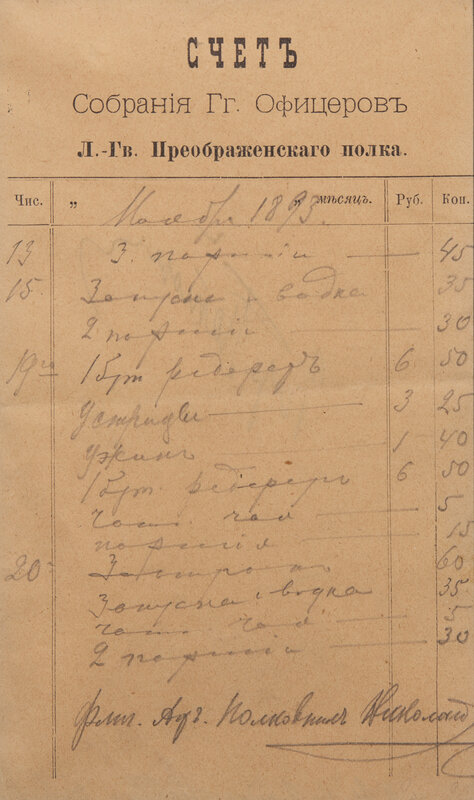 СЧЕТЪ
Собранія Гг. Офицеровъ
Л.-Гв. Преображенскаго полка.
Чис. „ Ноябрь 1893. „ мѣсяцъ. Руб. Коп.
13 3 порціи 45
15 Закуска и водка 35
2 порціи 30
19го 1 бут редереръ 6 50
Устрицы 3 25
Ужинъ 1 40
1 бут. редереръ 6 50
чаш. чая 5
порція 15
20 Завтракъ 60
Закуска и водка 35
чаш. чая 5
2 порціи 30
Флиг. Адъ. Полковникъ Николай